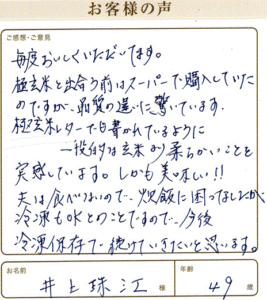 お客様の声
ご感想・ご意見
毎度おいしくいただいてます。
極玄米と出合う前はスーパーで購入していた
のですが、品質の違いに驚いています。
極玄米レターで白書かれているように
一般的な玄米より柔らかいことを
実感しています。しかも美味しい!!
夫は食べないので、炊飯に困ってましたが、
冷凍もOKとのことですので、今後
冷凍保存で続けていきたいと思います。
お名前
井上珠江 様
年齢
49 歳